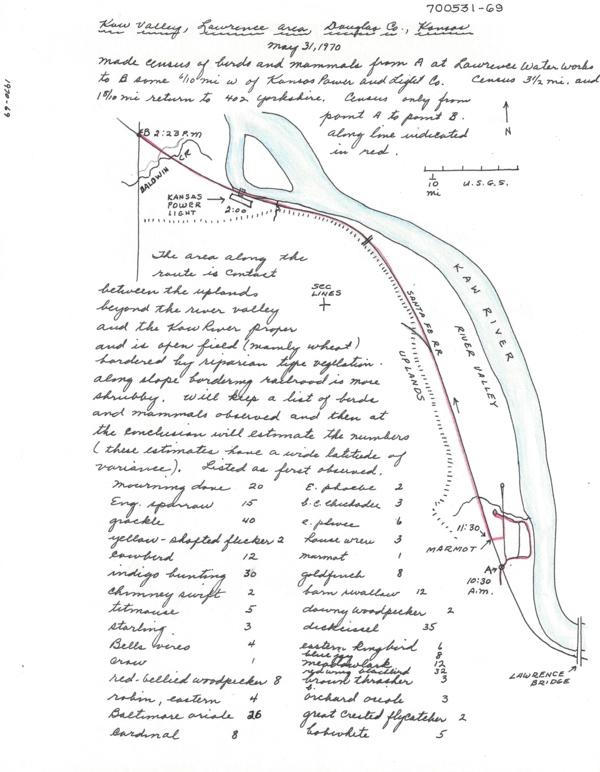 700531-69
Kaw Valley, Lawrence area Douglas Co., Kansas
May 31, 1970
1970-69
made census of birds and mammals from A at Lawrence Water Works
to B some 6/10 mi w of Kansas Power and Light Co. Census 3 1/2 mi. and
return to 402 Yorkshire. Census only from
point A to point B.
along line indicated
in red.
N
1/10 mi
U.S.G.S.
B 2:23 P.M
BALDWIN CR
KANSAS POWER LIGHT
2:00
The area along the
route is contact
between the uplands
beyond the river valley
and the Kaw River proper
and is open field (mainly wheat)
bordered by riparian type vegetation.
along slope bordering railroad is more
shrubby. Will keep a list of birds
and mammals observed and then at
the conclusion will estimate the numbers
(these estimates have a wide latitude of
variance). Listed as first observed.
SEC LINES
SANTA FE RR
UPLANDS
KAW RIVER
RIVER VALLEY
11:30
MARMOT
A
10:30 A.M.
LAWRENCE BRIDGE
mourning dove 20
Eng. sparrow 15
grackle 40
yellow-shafted flicker 2
cowbird 12
indigo bunting 30
chimney swift 2
titmouse 5
starling 3
Bells vireo 4
crow 1
red-bellied woodpecker 8
robin, eastern 4
Baltimore oriole 26
Cardinal 8
E. phoebe 2
b.c. chickadee 3
e. plover 6
house wren 3
marmot 1
goldfinch 8
barn swallow 12
downy woodpecker 2
dickcissel 35
eastern kingbird 6
blue jay 8
meadowlark 12
red wing blackbird 32
brown thrasher 3
orchard oriole 3
great crested flycatcher 2
bobwhite 5